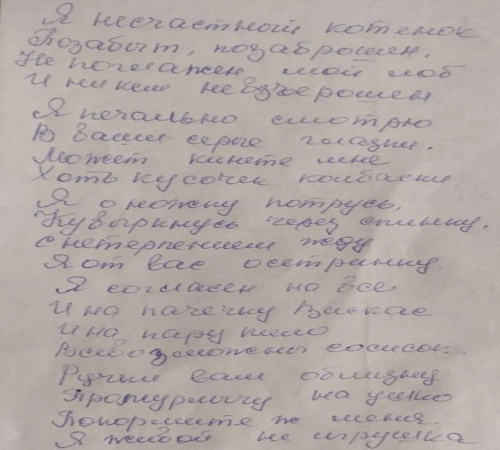 Я несчастный котенок
Позабыт, позаброшен.
Не поглажен мой лоб
И никем не взъерошен
Я печально смотрю
В ваши серые глазки.
Может кинете мне
Хоть кусочек колбаски
Я о ножку потрусь,
Кувыркнусь через спинку.
С нетерпением жду
Я от вас осетринку.
Я согласен на все
И на пачечку Вискас
И на пару кило
Всевозможны сосисок.
Ручки вам оближу
Промурлычу на ушко
Покормите ж меня.
Я живой не игрушка